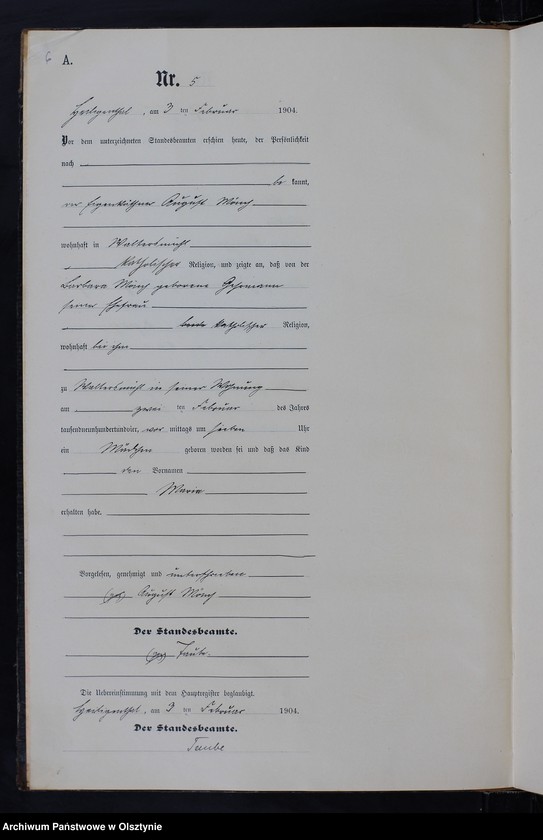 6 A.
Nr. 5
Heiligenthal, am 3 ten Februar 1904.
Vor dem unterzeichneten Standesbeamten erschien heute, der Persönlichkeit
nach
be kannt,
der Eigenkäthner August Mönch
wohnhaft in Waltersmühl
katholischer Religion, und zeigte an, daß von der
Barbara Mönch geborene
seiner Ehefrau
beide katholischer Religion,
wohnhaft bei ihm
zu Waltersmühl in seiner Wohnung
am zwei ten Februar des Jahres
tausendneunhundertundvier, vor mittags um sieben Uhr
ein Mädchen geboren worden sei und daß das Kind
den Vornamen
Maria
erhalten habe.
Vorgelesen, genehmigt und unterschrieben
(gez) August Mönch
Der Standesbeamte.
(gez) Taube.
Die Uebereinstimmung mit dem Hauptregister beglaubigt.
Heiligenthal, am 3 ten Februar 1904.
Der Standesbeamte.
Taube
Archiwum Państwowe w Olsztynie